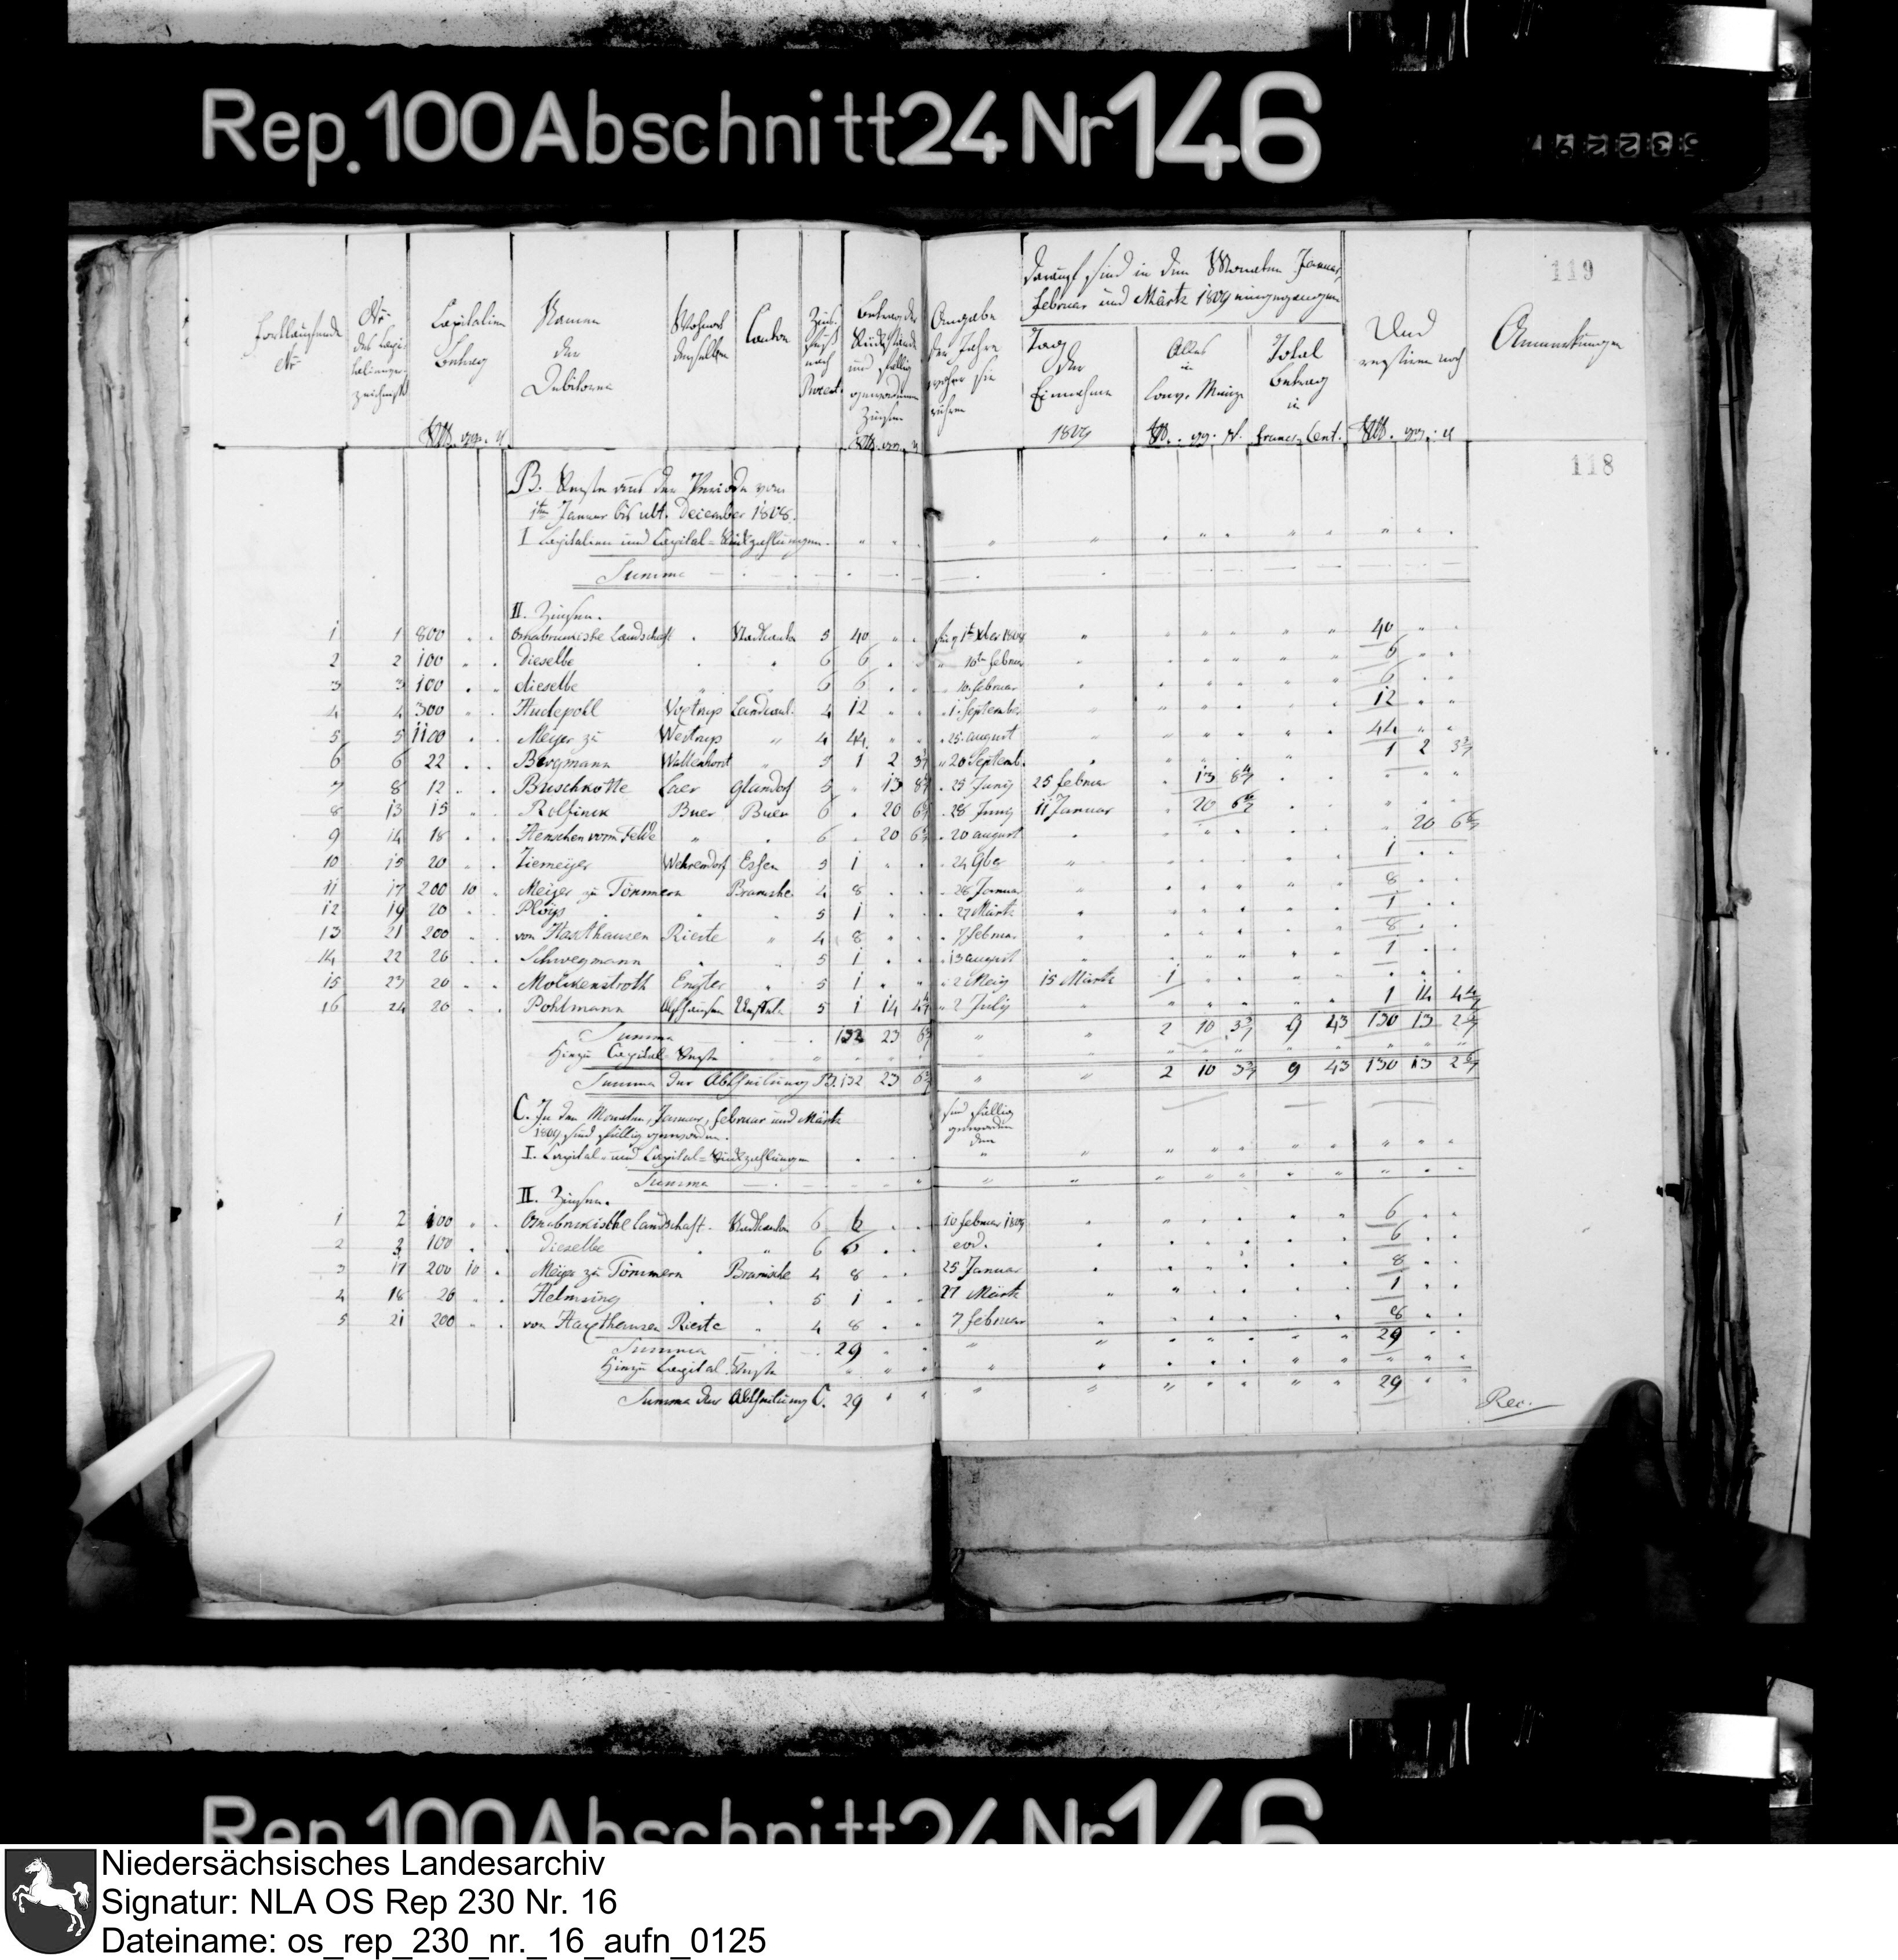 Rep. 100 Abschnitt 24 Nr 146
119
Fortlaufende Nr
Nr des Capitalienverzeichnißes
Capitalien Betrag
Rtlr. ggr. d.
Namen der Debitoren
Wohnort derselben
Canton
Zinsfuß nach Procent.
Betrag der Rückstände und fällig gewordenen Zinsen
Rtlr. ggr. d.
Angabe der Jahre woher sie rühren
Darauf sind in den Monaten Januar, Februar und Märtz 1809 eingegangen
Tag der Einnahme 1809
Alles in Conv. Münze
Rt. gg. d.
Total Betrag in
Francs Cent.
Und restiren noch
Rtlr. gg. d
Anmerkungen
118
B. Reste aus der Periode vom
1ten Januar bis ult. December 1808.
I Capitalien und Capital-Rückzahlungen.
Summe
II. Zinsen.
1 1 800 Osnabrückische Landschaft Stadtcanton 5 40 1808 40
2 2 100 Dieselbe 6 6 10ten Februar 6
3 3 100 dieselbe 6 6 10. Februar 6
4 4 300 Hudepoll Voxtrup Landcant. 4 12 1. September 12
5 5 1100 Meyer zu Westrup 4 44 25. august 44
6 6 22 Bergmann Wallenhorst 5 1 2 3 20 Septemb. 1 2 3
7 8 12 Buschkotte Laer Glandorf 5 13 8 25 Juny 25 Februar 13 8
8 13 15 Rolfinck Buer Buer 6 20 6 28 Juny 11 Januar 20 6
9 14 18 Henschen vorm Felde 6 20 6 20 august 20 6
10 15 20 Ziemeyer Wehrendorf Essen 5 1 24 9ber 1
11 17 200 10 Meyer zu Tömmern Bramsche 4 8 Januar 8
12 19 20 5 1 27 Märtz 1
13 21 200 von Haxthausen Rieste 4 8 7 Februar 8
14 22 26 Schwegmann 5 1 13 august 1
15 23 20 Molckenstroth Engter 5 1 2 Mey 15 Märtz 1
16 24 26 Pohlmann Alfhausen 5 1 14 4 2 July 1 14 4
Summe 132 23 6 2 10 3 9 43 130 13 2
Hinzu Capital Reste
Summa der Abtheilung B. 132 23 6 2 10 3 9 43 130 13 2
C. In den Monaten, Januar, Februar und Märtz
1809 sind fällig geworden.
sind fällig geworden den
I. Capital- und Capital-Rückzahlungen
Summa
II. Zinsen.
1 2 100 Osnabrückische Landschaft. Stadtcanton 6 6 10 Februar 1809 6
2 3 100 dieselbe 6 6 eod. 6
3 17 200 10 Meyer zu Tömmern Bramsche 4 8 25 Januar 8
4 18 20 Helmsing 5 1 27 Märtz 1
5 21 200 von Haxthausen Rieste 4 8 7 Februar 8
Summa 29 29
Hinzu Capital Reste
Summa der Abtheilung C. 29 29
Rec.
Rep. 100 Abschnitt 24 Nr 146
Niedersächsisches Landesarchiv
Signatur: NLA OS Rep 230 Nr. 16
Dateiname: os_rep_230_nr._16_aufn_0125